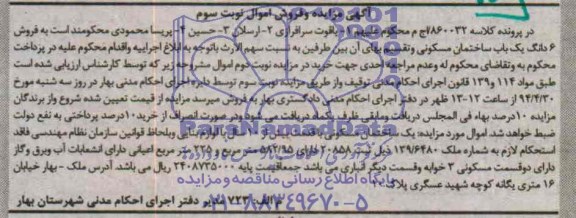 آگهی مزایده وفروش اموال نوبت سوم
در پرونده کلاسه ۷۸۶۰۰۳۲ج م محکوم علیهم ۱- یاقوت سرافرازی ۲- ارسلان ۳- حسین ۴- پریسا محمودی محکومند است به فروش
۶ دانگ یک باب ساختمان مسکونی وتقسیم بهای آن بین طرفین به نسبت سهم الارث باتوجه به ابلاغ اجراییه واقدام محکوم علیه در پرداخت
محکوم به وتقاضای محکوم له وعدم مراجعه احدی جهت خرید در مزایده نوبت دوم اموال مشروحه زیر که توسط کارشناس ارزیابی شده است
طبق مواد ۱۱۴ و۱۳۹ قانون اجرای احکام مدنی توقیف واز طریق مزایده نوبت سوم توسط دایره اجرای احکام مدنی بهار در روز سه شنبه مورخ
۹۴/۴/۳۰ از ساعت ۱۲-۱۳ ظهر در دفتر اجرای احکام مدنی دادگستری بهار به فروش میرسد مزایده از قیمت تعیین شده شروع واز برندگان
مزایده ۱۰درصد بهاء فی المجلس دریافت ومابقی ظرف یکماه دریافت می شود ودر صورت انصراف از خرید ۱۰درصد پرداختی به نفع دولت
ضبط خواهد شد. اموال مورد مزایده: یک ساختمان مسکونی وبلحاظ قوانین سازمان نظام مهندسی فاقد
استحکام لازم به شماره ملک ۱۳۹/۶۴۸۰ ذیل ثبت ۲۰۸۵۸ دارای متر مربع و ۲۳۵ متر مربع اعیانی دارای انشعابات آب وبرق وگاز
دارای دوقسمت مسکونی ۲ خوابه وقسمت دیگر انباری می باشد جمعاقیمت پایه ۲۴۰۸۷۳۵۰۰۰ ریال می باشد. آدرس ملک - بهار خیابان
۱۶ متری یگانه کوچه شهید عسگری پلاک
م الف ۷۲۳ مدیر دفتر اجرای احکام مدنی شهرستان بهار
پایگاه اطلاع رسانی مناقصه ومزایده
۰۲۱-۸۸۳۴۹۶۷۰-۵